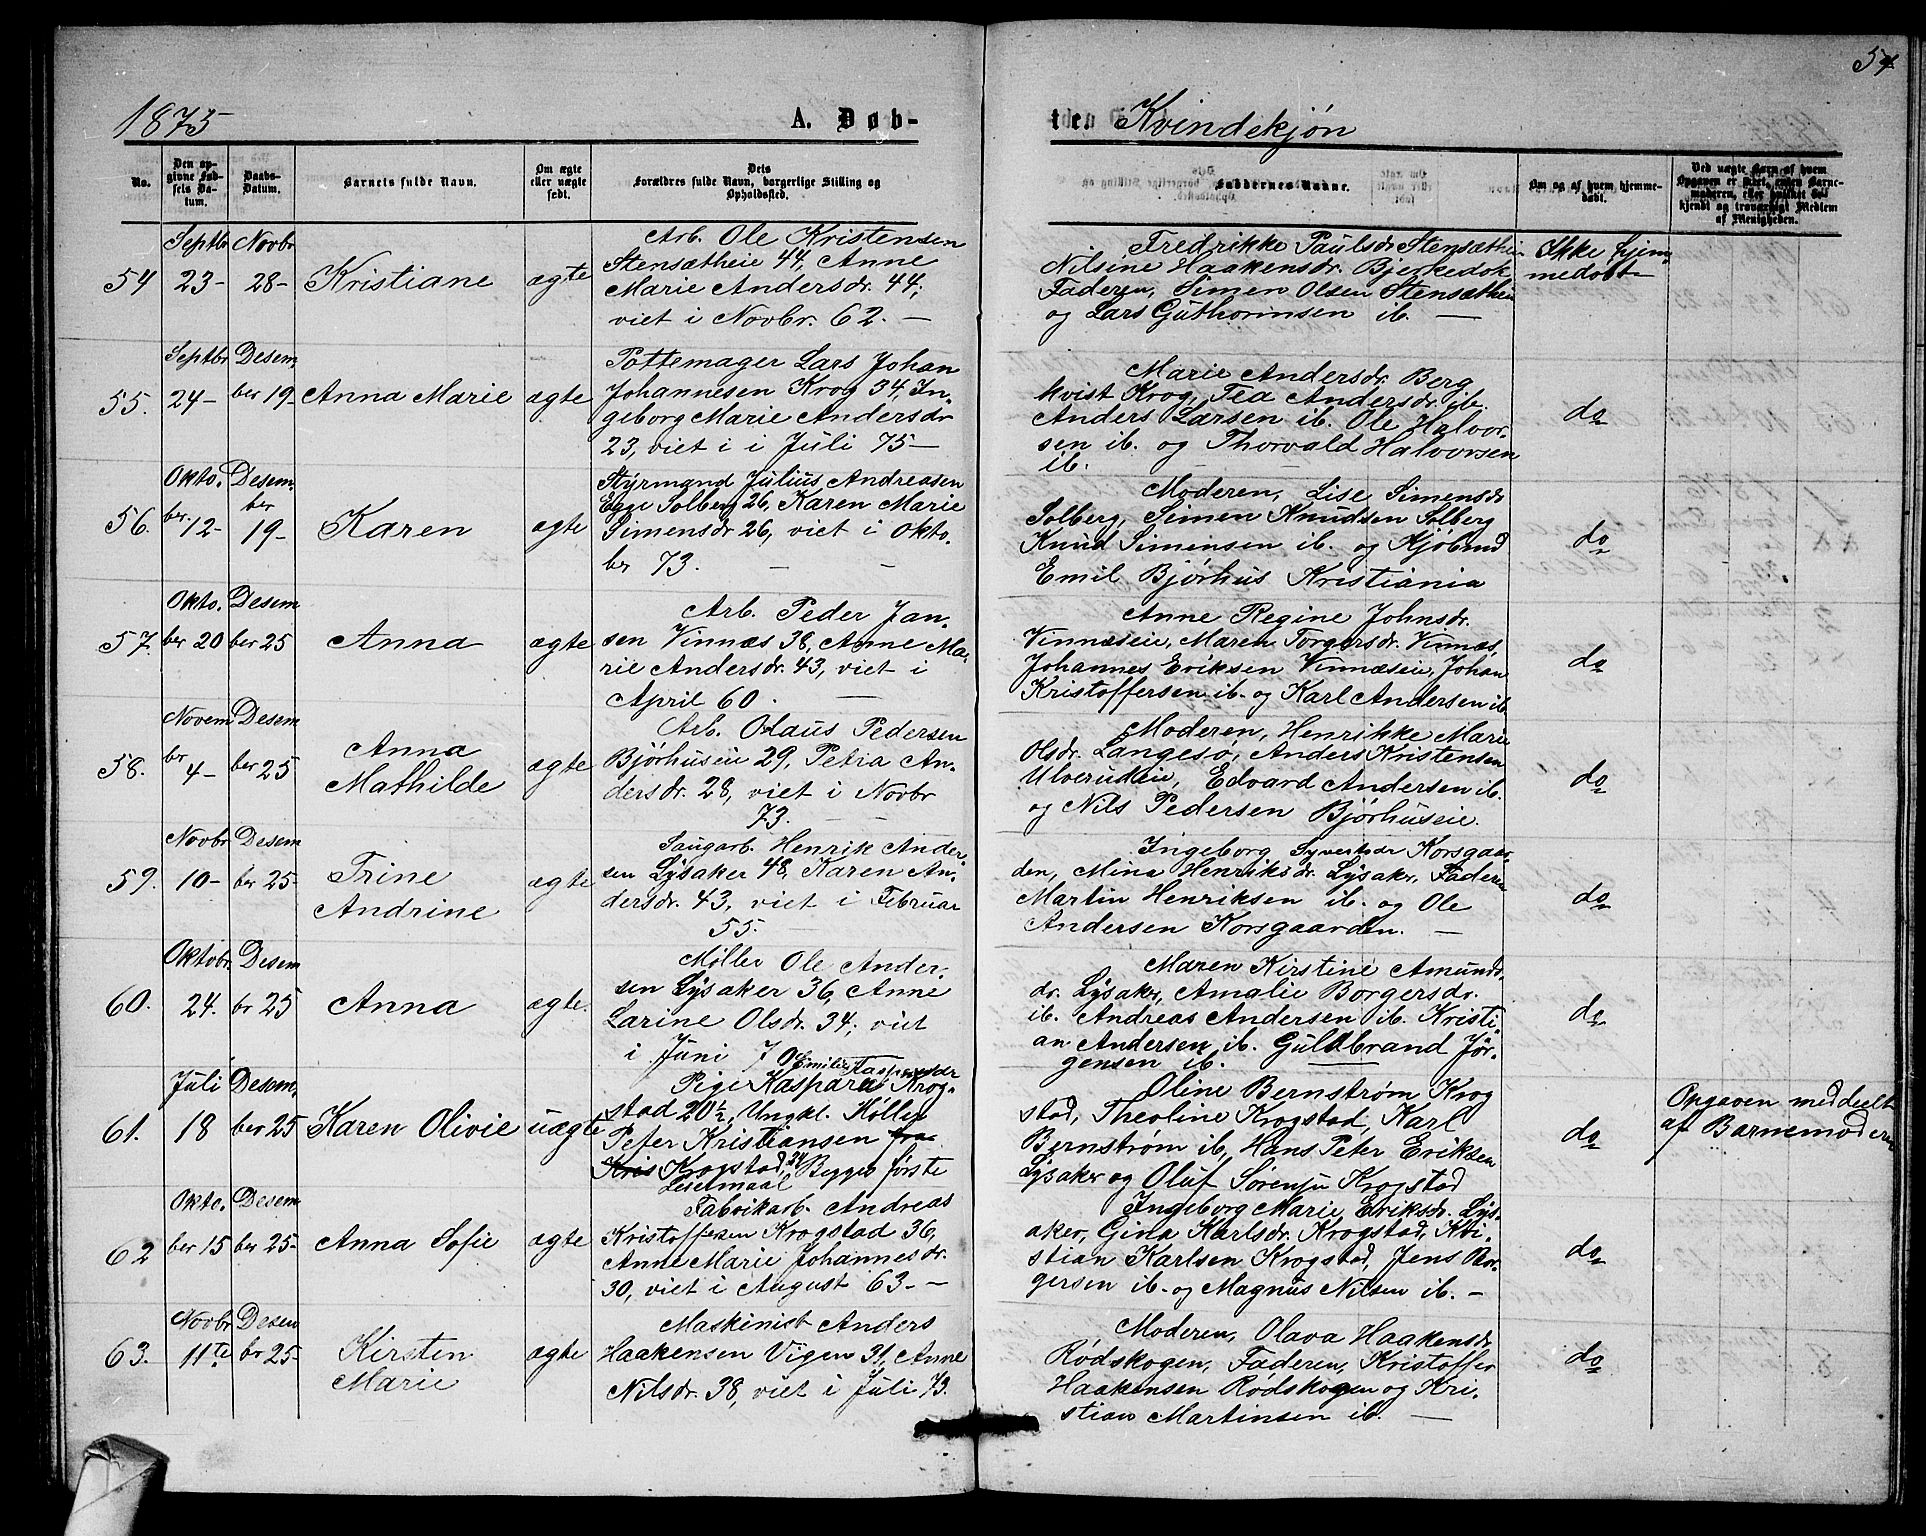 54
1875
A. Døb-
ten Kvindekjøn
No.
Den op-
givne Fød-
sels Da-
tum.
Daabs-
Datum.
Barnets fulde Navn.
Om ægte
eller uægte
født.
Dets
Forældres fulde Navn, borgerlige Stilling og
Opholdssted.
Faddernes Navne.
Om og af hvem hjemme-
døbt.
Ved uægte Barn af hvem
Opgaven er skeet, enten Barne-
moderen, eller hvilket be-
kjendt og troværdigt Medlem
af Menigheden.
54
Septbr
23-
Novbr
28-
Kristiane
ægte
Arb. Ole Kristensen
Stensætheie 44, Anne
Marie Andersdr. 44;
viet i Novbr. 62. —
Fredrikke Paulsdr. Stensætheie
Nilsine Haakensdr. Bjerkedok
Faderen, Simen Olsen Stensætheie
og Lars Guthormsen ib. —
Ikke hjem-
medøbt
55.
Septbr
24-
Desem
ber 19-
Anna Marie
ægte
Pottemager Lars Johan
Johannesen Krog 34, In-
geborg Marie Andersdr
23, viet i i Juli 75 —
Marie Andersdr. Berg
kvist Krog, Tea Andersdr. ib.
Anders Larsen ib. Ole Halvor-
sen ib. og Thorvald Halvorsen
ib. —
do
56.
Okto-
ber 12-
Desem-
ber
19-
Karen
ægte
Styrmand Julius Andreasen
Egge Solberg 26, Karen Marie
Simensdr 26, viet i Okto-
ber 73. — —
Moderen, Lise Simensdr
Solberg, Simen Knudsen Solberg
Knud Simensen ib. og Kjøbmd
Emil Bjørhus Kristiania
do
57.
Okto-
ber 20
Desem
ber 25
Anna
ægte
Arb. Peder Jan-
sen Vinnæs 38, Anne Ma-
rie Andersdr. 43, viet i
April 60. —
Anne Regine Johnsdr.
Vinnæseie, Maren Torgersdr. Vinnæs,
Johannes Eriksen Vinnæseie, Johan
Kristoffersen ib. og Karl Andersen ib.
do
58.
Novem
ber 4-
Desem
ber 25
Anna
Mathilde
ægte
Arb. Olaus Pedersen
Bjørhuseie 29, Petra An-
dersdr. 28, viet i Novbr
73. — —
Moderen, Henrikke Marie
Olsdr. Langesø, Anders Kristensen
Ulverudeie, Edvard Andersen ib.
og Nils Pedersen Bjørhuseie.
do
59.
Novbr
10-
Desem
ber 25-
Trine
Andrine
ægte
Saugarb. Henrik Ander-
sen Lysaker 48, Karen An-
dersdr. 43, viet i Februar
55. —
Ingeborg Syvertsdr Korsgaar-
den, Mina Henriksdr. Lysaker, Faderen
Martin Henriksen ib. og Ole
Andersen Korsgaarden. —
do
60.
Oktobr.
24.
Desem
br 25
Anna
ægte.
Møller Ole Ander-
sen Lysaker 36, Anne
Larine Olsdr. 34; viet
i Juni 70
Maren Kirstine Amunds-
dr. Lysaker, Amalie Borgersdr.
ib. Andreas Andersen ib. Kristi-
an Andersen ib. Guldbrand Jør-
gensen ib. —
do
61.
Juli
18
Desem-
ber 25
Karen Olivie
uægte
Emilie Kaspersdr
Pige Kaspara Krog-
stad 20½, Ungkl. Møller
Peter Kristiansen fra
Kris Krogstad, 24 Begges første
Leiermaal
Oline Bernstrøm Krog
stad, Theoline Krogstad, Karl
Bernstrøm ib, Hans Peter Eriksen
Lysaker og Oluf Sørensen Krogstad
do
Opgaven meddeelt
af Barnemoderen
62
Okto-
ber 15
Desem
ber 25-
Anna Sofie
ægte
Fabrikarb. Andreas
Kristoffersen Krogstad 36,
Anne Marie Johannesdr.
30, viet i August 63. —
Ingeborg Marie Eriksdr. Lys-
aker, Gina Karlsdr. Krogstad, Kri-
stian Karlsen Krogstad, Jens Bor-
gersen ib. og Magnus Nilsen ib. —
do
63.
Novbr
11te
Desem
br 25-
Kirsten
Marie
ægte
Maskinist Anders
Haakensen Vigen 31, Anne
Nilsdr. 38, viet i Juli 73.
Moderen, Olava Haakensdr.
Rødskogen, Faderen, Kristoffer
Haakensen Rødskogen og Kri-
stian Martinsen ib. —
do